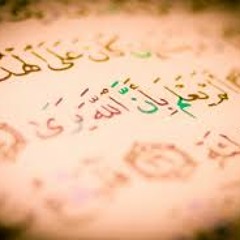 كَانَ عَلَى الْهُدَ
لَمْ يَعْلَم بِأَنَّ اللَّهَ يَرَىٰ